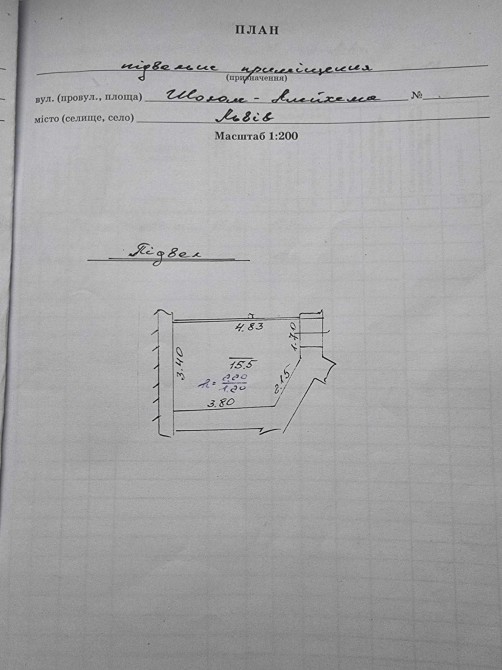 ПЛАН
підвальне приміщення
(призначення)
вул. (провул., площа) Шолом - Алейхема №
місто (селище, село) Львів
Масштаб 1:200
Підвал
4.83
1.70
3.40
15.5
h = 220/120
2.15
3.80